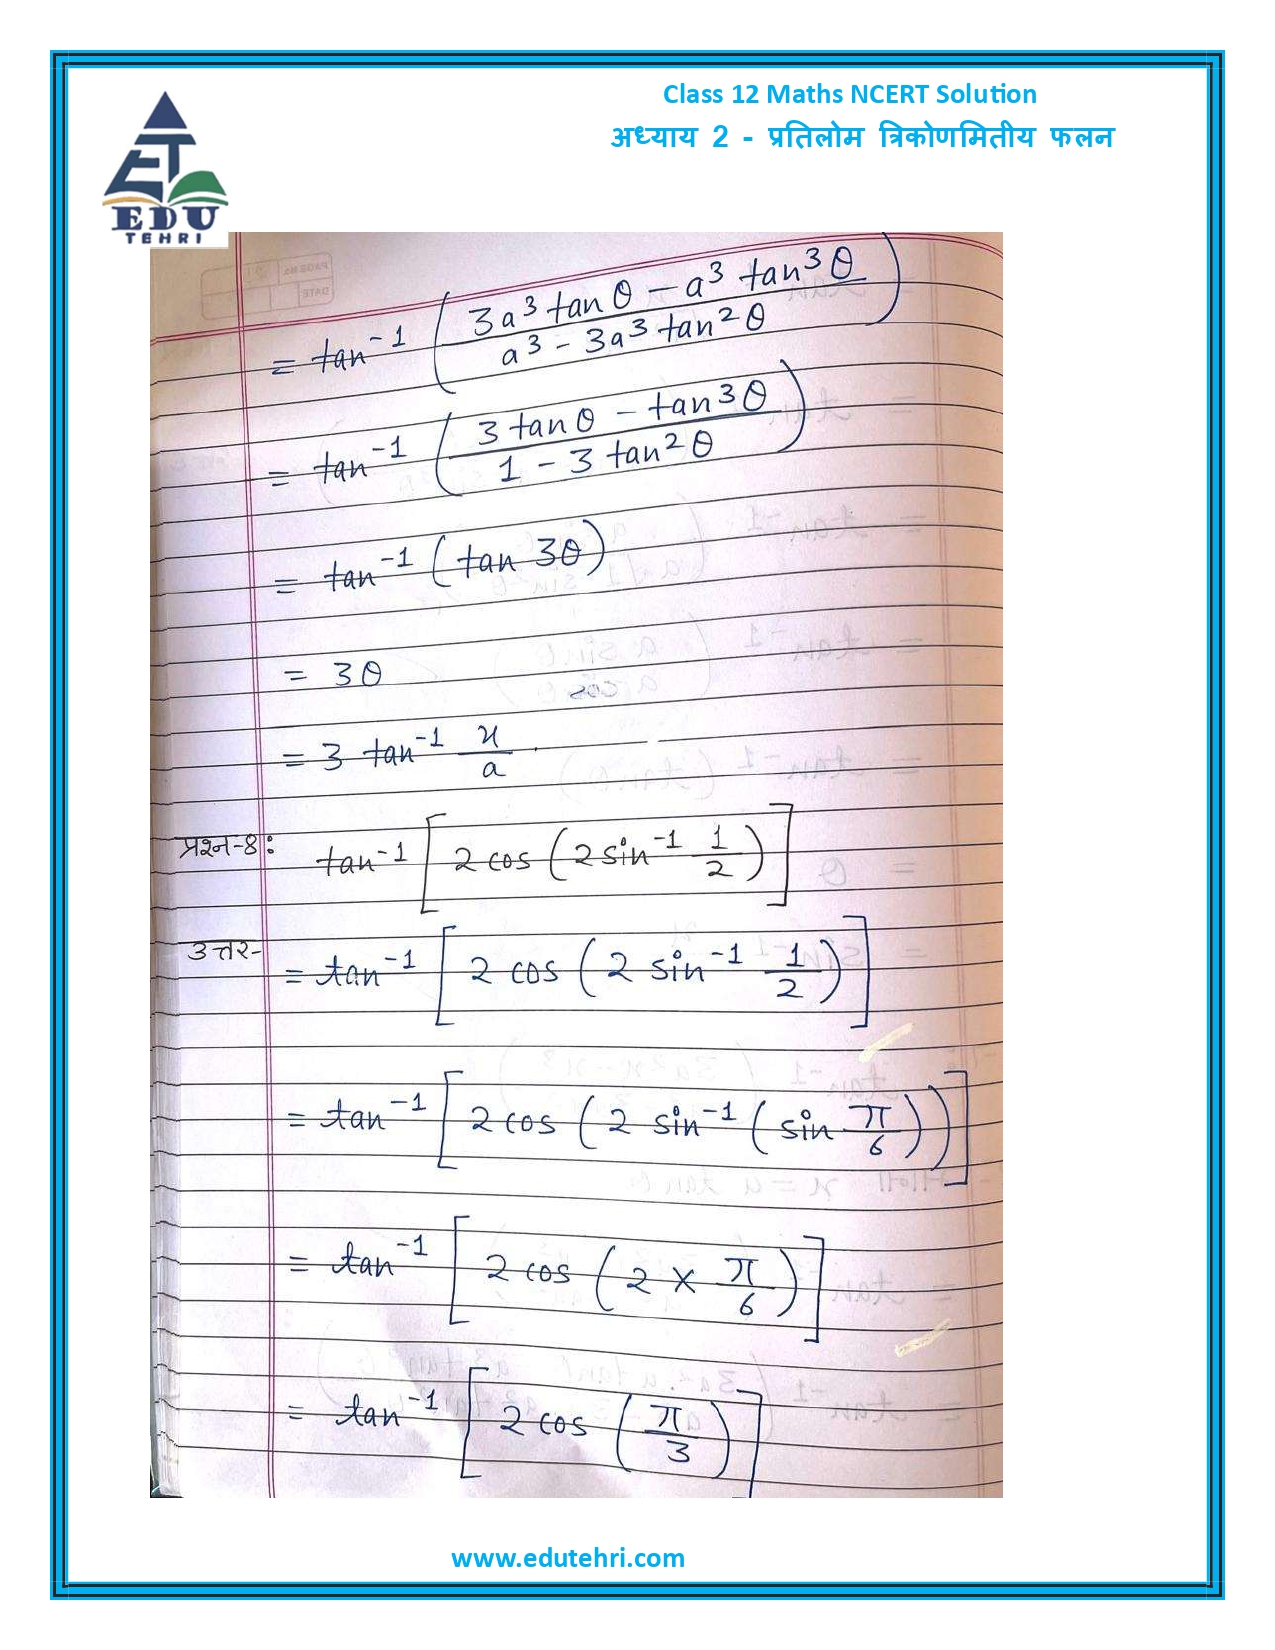 Class 12 Maths NCERT Solution
अध्याय 2 - प्रतिलोम त्रिकोणमितीय फलन
EDU
TEHRI
PAGE No.
DATE
= tan⁻¹ ( (3a³ tan θ - a³ tan³ θ) / (a³ - 3a³ tan² θ) )
= tan⁻¹ ( (3 tan θ - tan³ θ) / (1 - 3 tan² θ) )
= tan⁻¹ (tan 3θ)
= 3θ
= 3 tan⁻¹ x/a .
प्रश्न-8: tan⁻¹ [ 2 cos ( 2 sin⁻¹ 1/2 ) ]
उत्तर- = tan⁻¹ [ 2 cos ( 2 sin⁻¹ 1/2 ) ]
= tan⁻¹ [ 2 cos ( 2 sin⁻¹ ( sin π/6 ) ) ]
= tan⁻¹ [ 2 cos ( 2 × π/6 ) ]
= tan⁻¹ [ 2 cos ( π/3 ) ]
www.edutehri.com